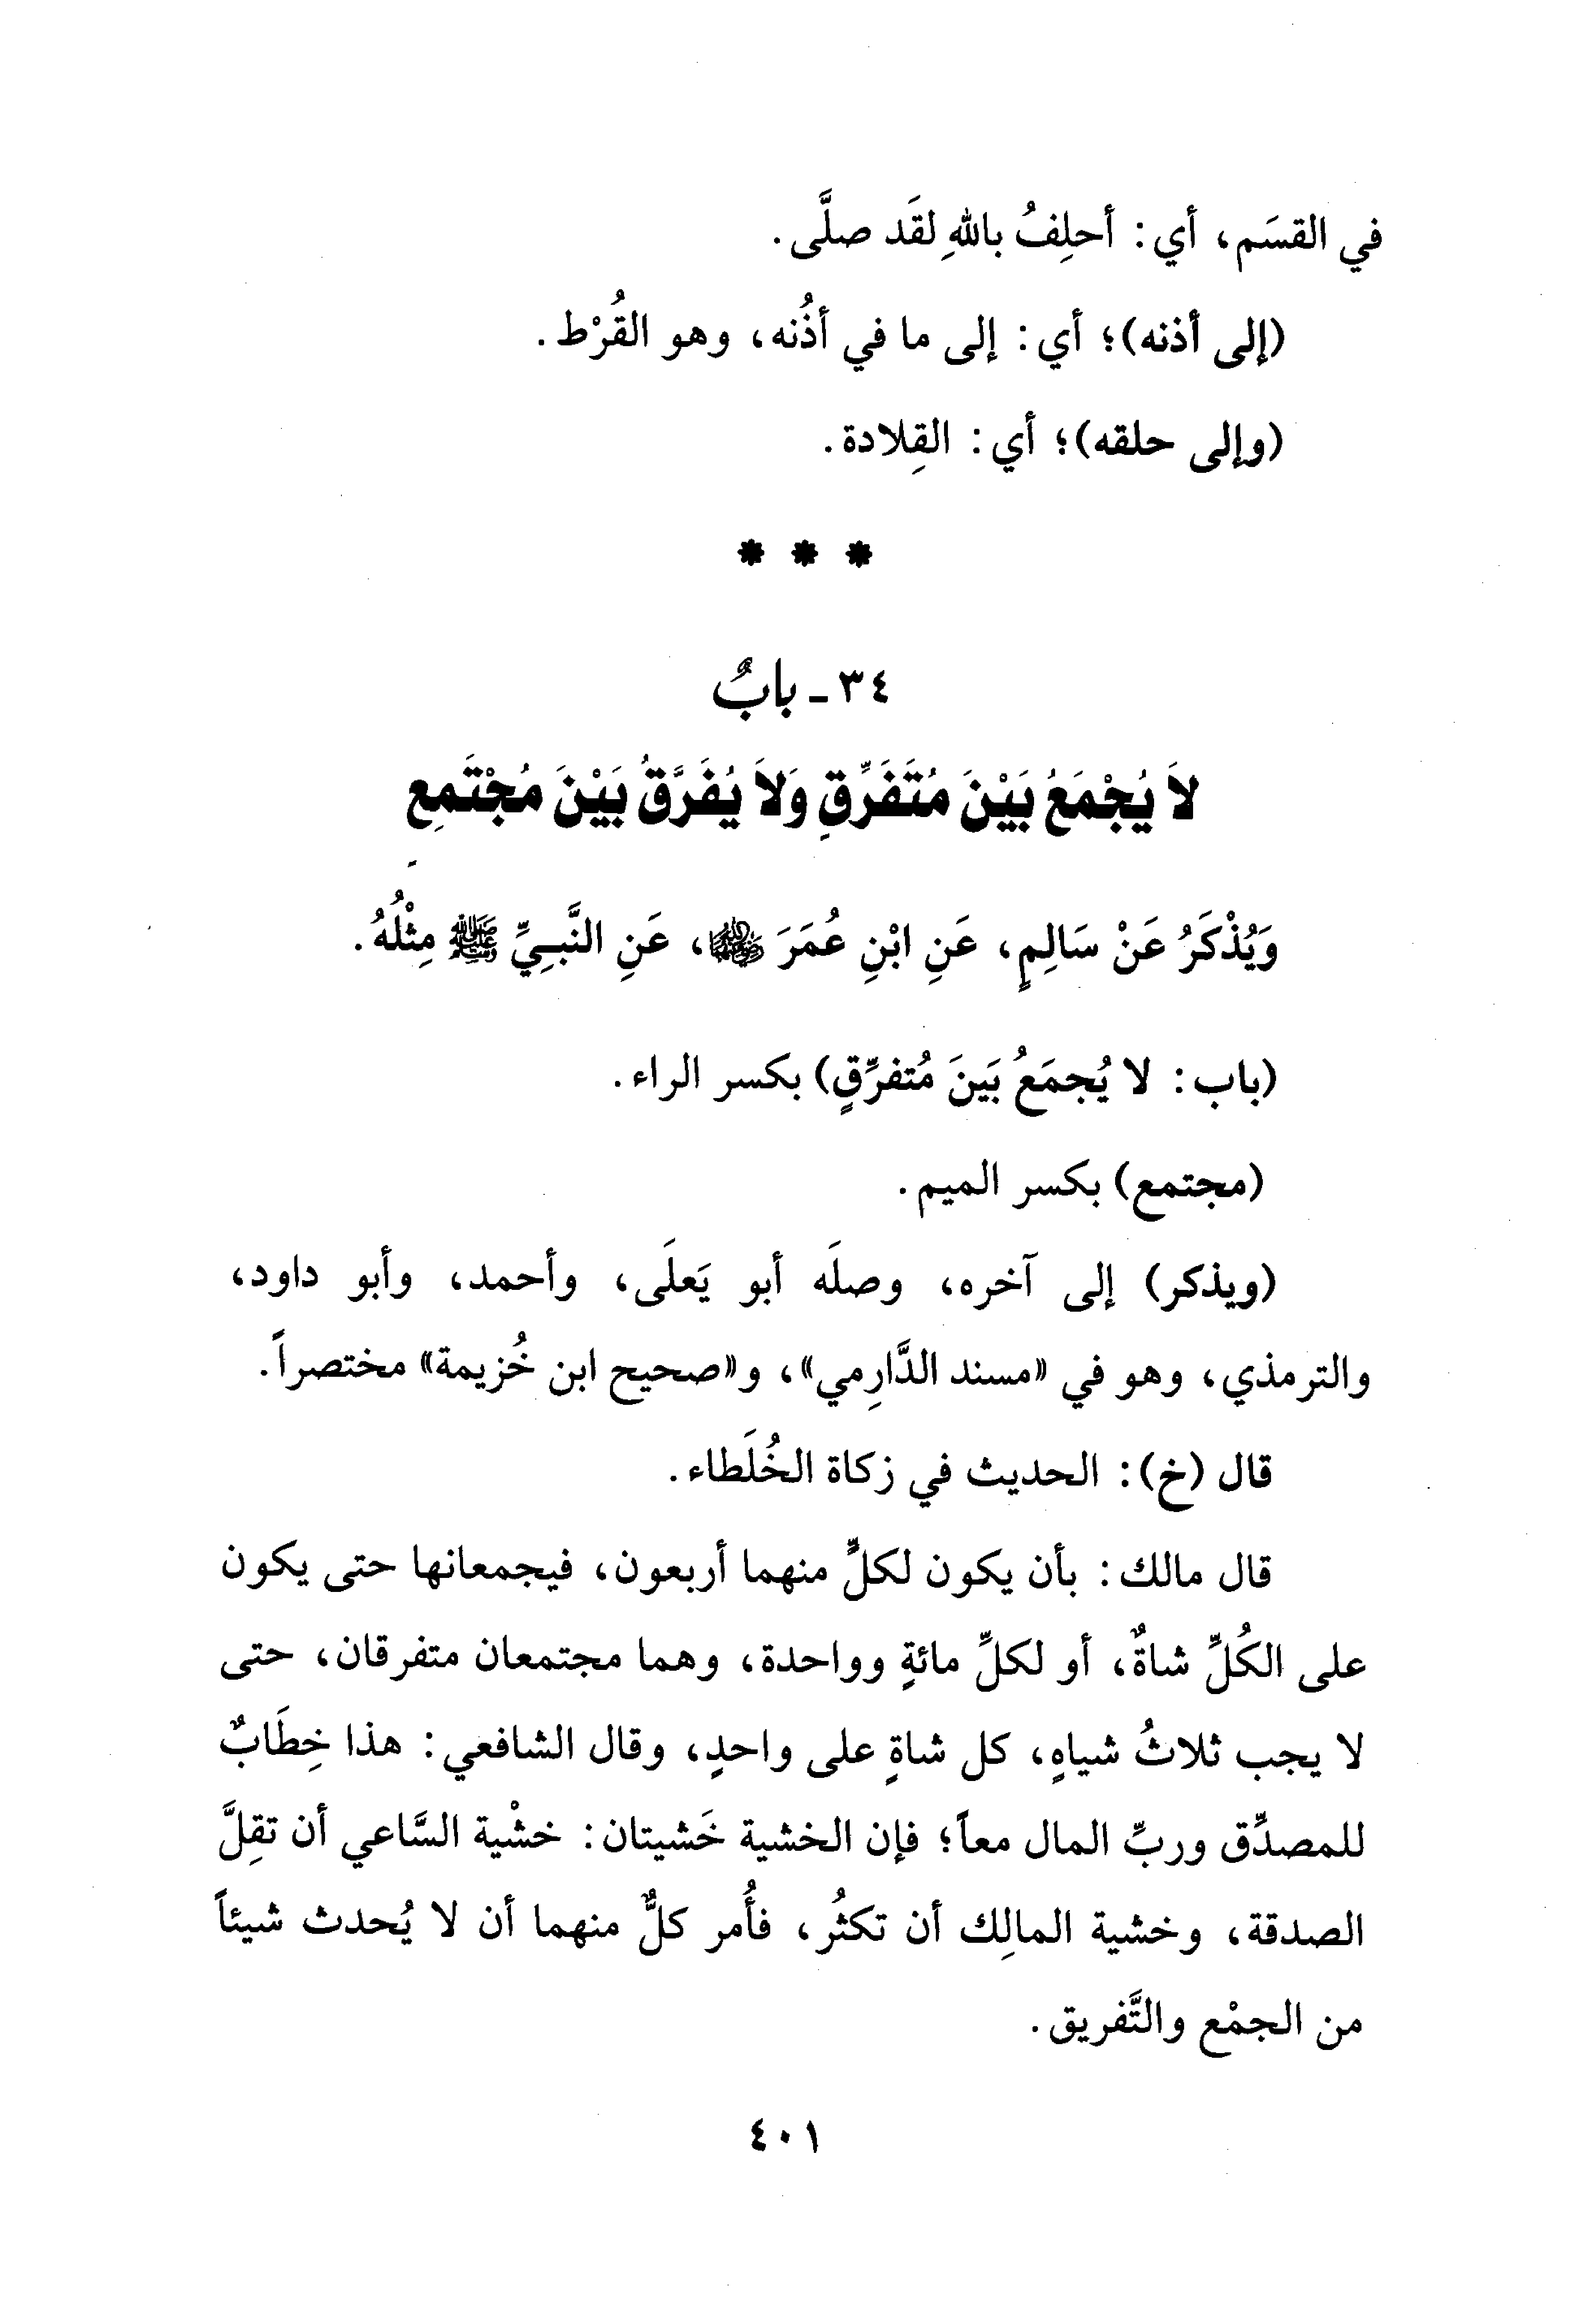 في القسَم، أي: أحلِفُ باللهِ لقَد صلَّى.
(إلى أذنه)؛ أي: إلى ما في أذُنه، وهو القُرْط.
(وإلى حلقه)؛ أي: القِلادة.
* * *
٣٤ - بابٌ
لاَ يُجْمَعُ بَيْنَ مُتَفَرِّقٍ وَلاَ يُفَرَّقُ بَيْنَ مُجْتَمِعٍ
وَيُذْكَرُ عَنْ سَالِمٍ، عَنِ ابْنِ عُمَرَ رضي الله عنهما، عَنِ النَّبِيِّ ﷺ مِثْلُهُ.
(باب: لا يُجمَعُ بَينَ مُتفرِّقٍ) بكسر الراء.
(مجتمع) بكسر الميم.
(ويذكر) إلى آخره، وصلَه أبو يَعلَى، وأحمد، وأبو داود،
والترمذي، وهو في «مسند الدَّارِمي»، و«صحيح ابن خُزيمة» مختصراً.
قال (خ): الحديث في زكاة الخُلَطاء.
قال مالك: بأن يكون لكلٍّ منهما أربعون، فيجمعانها حتى يكون
على الكُلِّ شاةٌ، أو لكلِّ مائةٍ وواحدة، وهما مجتمعان متفرقان، حتى
لا يجب ثلاثُ شياهٍ، كل شاةٍ على واحدٍ، وقال الشافعي: هذا خِطَابٌ
للمصدِّق وربِّ المال معاً؛ فإن الخشية خَشيتان: خشْية السَّاعي أن تقِلَّ
الصدقة، وخشية المالِك أن تكثُر، فأُمر كلٌّ منهما أن لا يُحدث شيئاً
من الجمْع والتَّفريق.
٤٠١